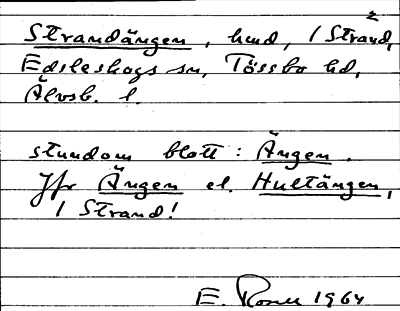 Strandängen, hmd, 1 Strand,²
Edsleskogs sn, Tössbo hd,
Älvsb. l.
stundom blott: Ängen.
Jfr Ängen el. Hultängen,
1 Strand!
E. Rosell 1964